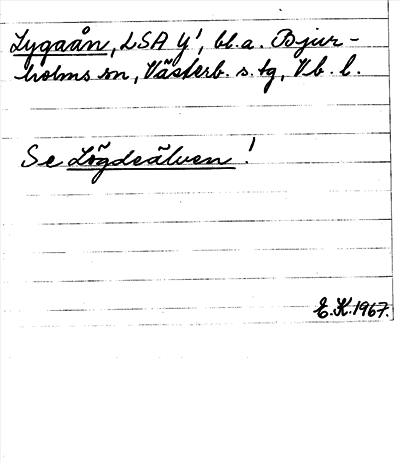 Lygaån, LSA y¹, bl.a. Bjur-
holms sn, Västerb. s. tg, Vb. l.
Se Lögdeälven!
E.K. 1967.